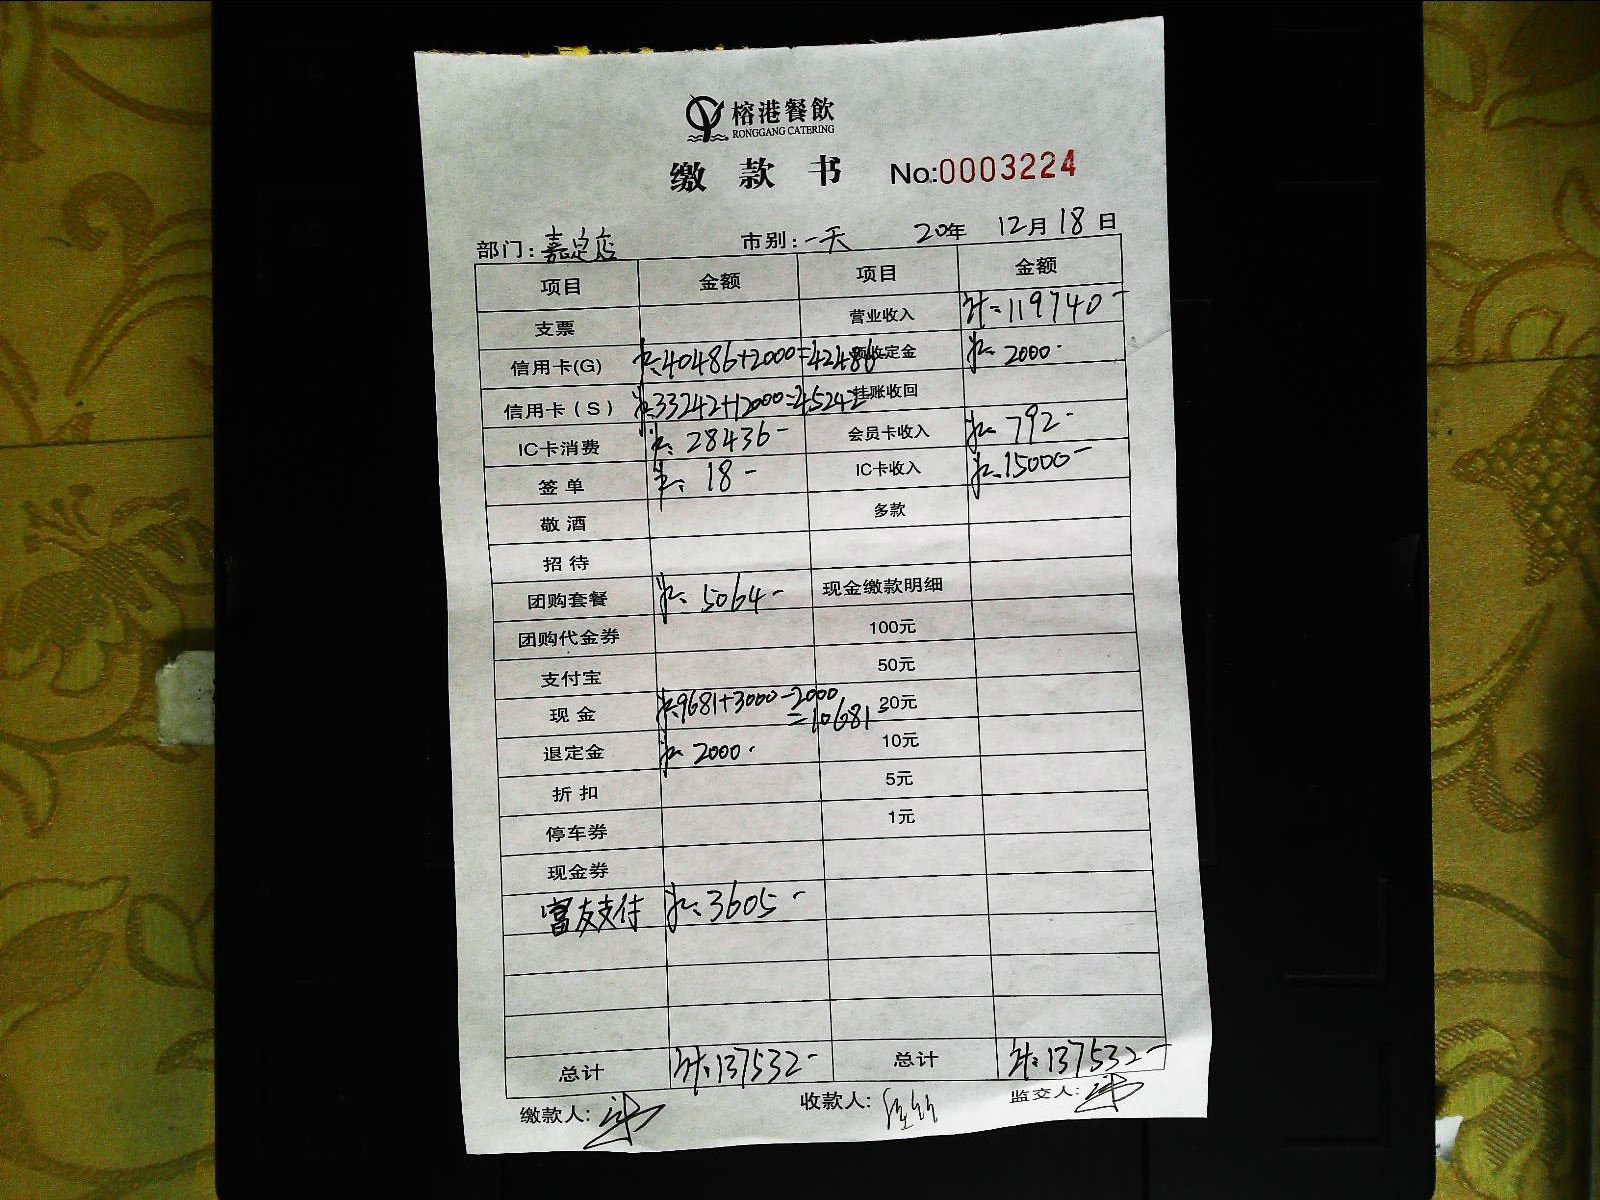 榕港餐飲
RONGGANG CATERING
缴款书 No:0003224
部门:嘉定店 市别:一天 20年 12月18日
项目 金额 项目 金额
支票 营业收入 计:119740-
信用卡(G) 计:40486+2000=42486- 预收定金 计:2000-
信用卡(S) 计:33242+12000=45242- 挂账收回
IC卡消费 计:28436- 会员卡收入 计:792-
签单 计:18- IC卡收入 计:15000-
敬酒 多款
招待
团购套餐 计:5064- 现金缴款明细
团购代金券 100元
支付宝 50元
现金 计:9681+3000-2000=10681- 20元
退定金 计:2000- 10元
折扣 5元
停车券 1元
现金券
富友支付 计:3605-
总计 计:137532- 总计 计:137532-
缴款人: 收款人: 监交人: